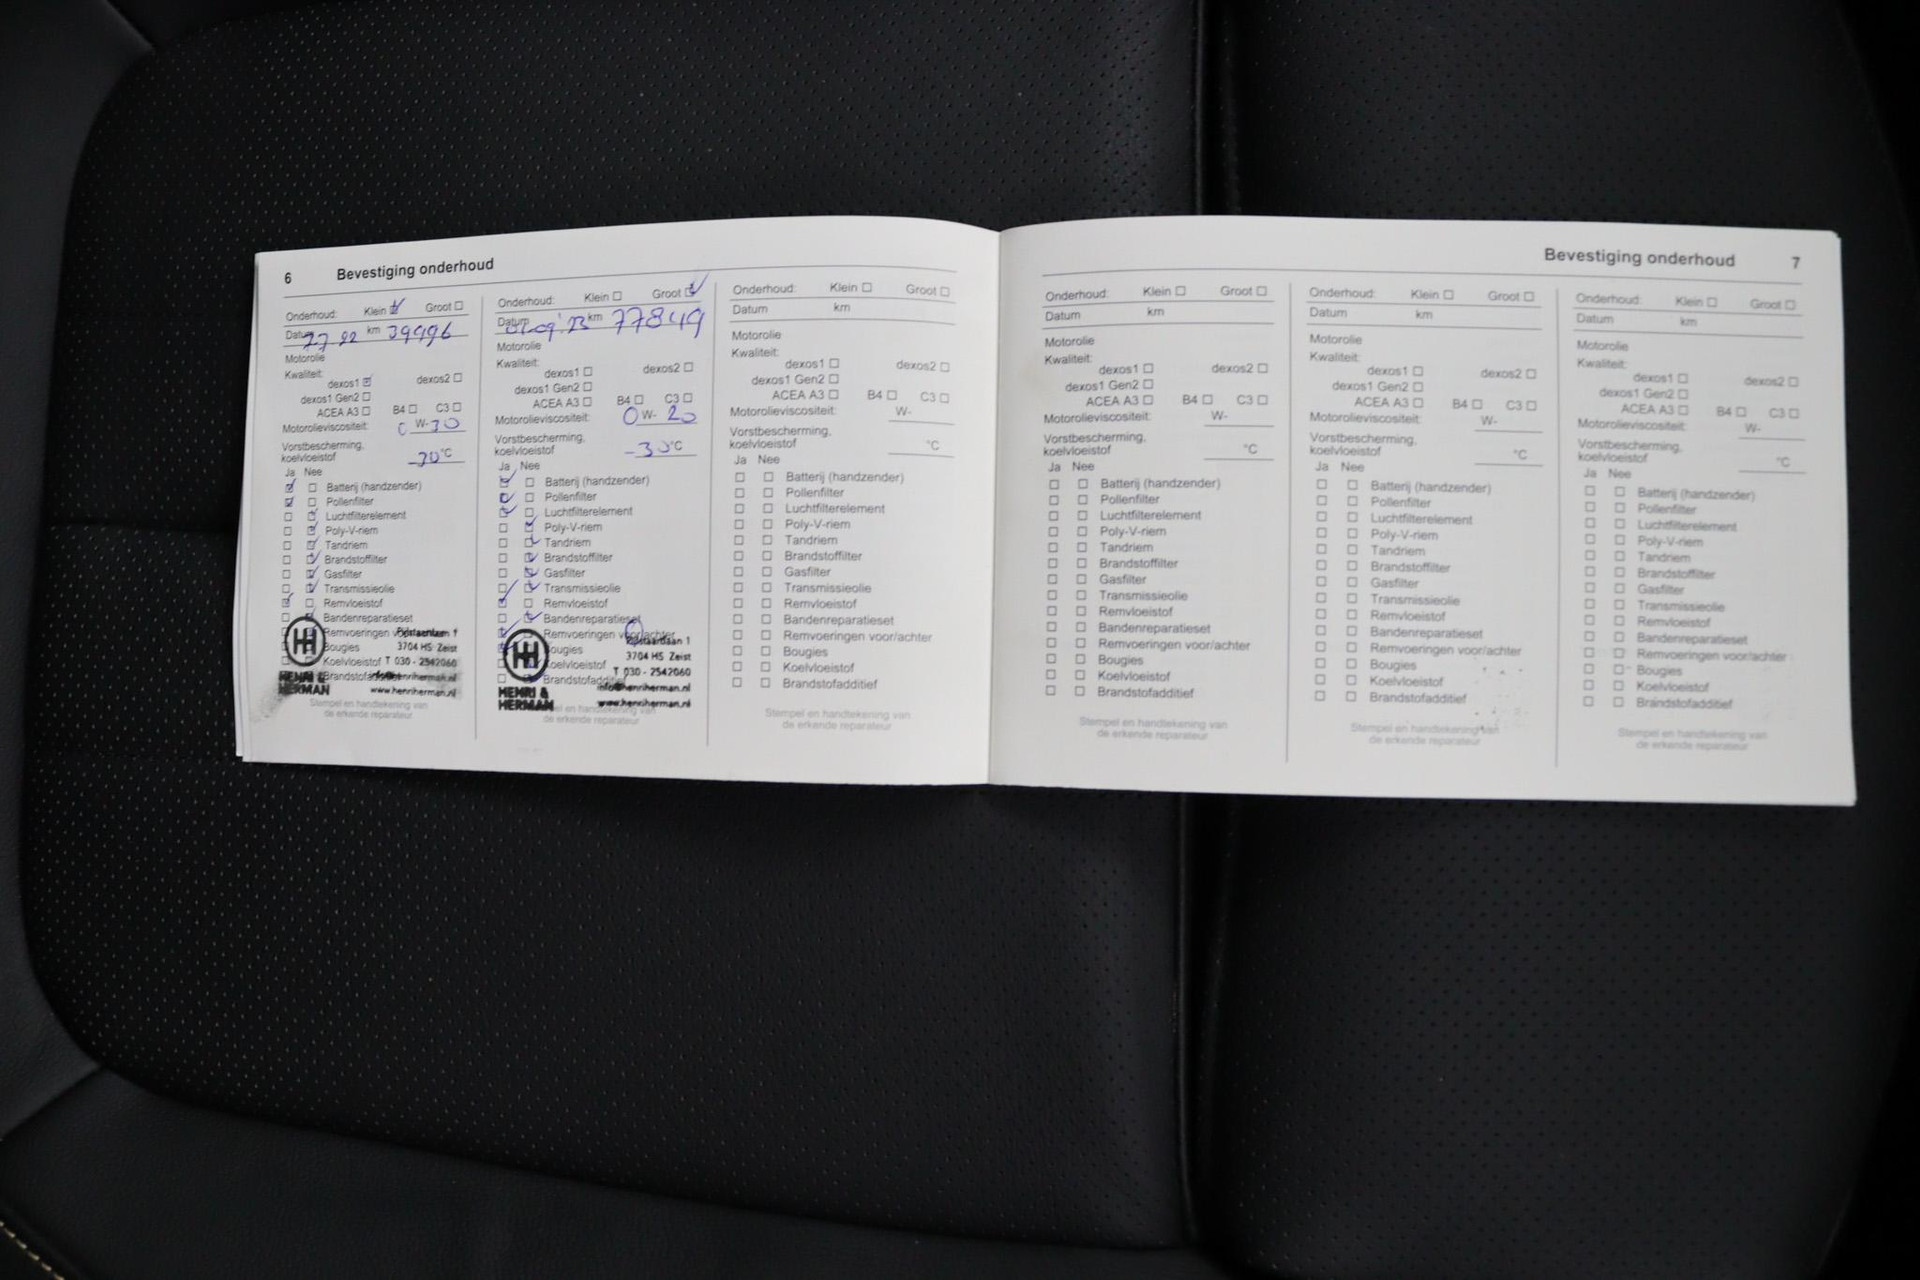 6 Bevestiging onderhoud
Onderhoud: Klein Groot
km 39996
Motorolie
Kwaliteit:
dexos1 dexos2
dexos1 Gen2
ACEA A3 B4 C3
Motorolieviscositeit: 0 W-30
Vorstbescherming,
koelvloeistof °C
Ja Nee
Batterij (handzender)
Pollenfilter
Luchtfilterelement
Poly-V-riem
Tandriem
Brandstoffilter
Gasfilter
Transmissieolie
Remvloeistof
Bandenreparatieset
Remvoeringen
Bougies 3704 HS Zeist
Koelvloeistof T 030 - 2542060
HENRI &
HERMAN www.henriherman.nl
Stempel en handtekening van
de erkende reparateur
Onderhoud: Klein Groot
Datum '23 km 77849
Motorolie
Kwaliteit:
dexos1 dexos2
dexos1 Gen2
ACEA A3 B4 C3
Motorolieviscositeit: 0 W- 20
Vorstbescherming,
koelvloeistof -30°C
Ja Nee
Batterij (handzender)
Pollenfilter
Luchtfilterelement
Poly-V-riem
Tandriem
Brandstoffilter
Gasfilter
Transmissieolie
Remvloeistof
Bandenreparatieset
Remvoeringen voor/achter
Bougies 3704 HS Zeist
Koelvloeistof T 030 - 2542060
Brandstofadditief info@henriherman.nl
HENRI &
HERMAN www.henriherman.nl
de erkende reparateur
Onderhoud: Klein Groot
Datum km
Motorolie
Kwaliteit:
dexos1 dexos2
dexos1 Gen2
ACEA A3 B4 C3
Motorolieviscositeit: W-
Vorstbescherming,
koelvloeistof °C
Ja Nee
Batterij (handzender)
Pollenfilter
Luchtfilterelement
Poly-V-riem
Tandriem
Brandstoffilter
Gasfilter
Transmissieolie
Remvloeistof
Bandenreparatieset
Remvoeringen voor/achter
Bougies
Koelvloeistof
Brandstofadditief
Stempel en handtekening van
de erkende reparateur
Bevestiging onderhoud 7
Onderhoud: Klein Groot
Datum km
Motorolie
Kwaliteit:
dexos1 dexos2
dexos1 Gen2
ACEA A3 B4 C3
Motorolieviscositeit: W-
Vorstbescherming,
koelvloeistof °C
Ja Nee
Batterij (handzender)
Pollenfilter
Luchtfilterelement
Poly-V-riem
Tandriem
Brandstoffilter
Gasfilter
Transmissieolie
Remvloeistof
Bandenreparatieset
Remvoeringen voor/achter
Bougies
Koelvloeistof
Brandstofadditief
Stempel en handtekening van
de erkende reparateur
Onderhoud: Klein Groot
Datum km
Motorolie
Kwaliteit:
dexos1 dexos2
dexos1 Gen2
ACEA A3 B4 C3
Motorolieviscositeit: W-
Vorstbescherming,
koelvloeistof °C
Ja Nee
Batterij (handzender)
Pollenfilter
Luchtfilterelement
Poly-V-riem
Tandriem
Brandstoffilter
Gasfilter
Transmissieolie
Remvloeistof
Bandenreparatieset
Remvoeringen voor/achter
Bougies
Koelvloeistof
Brandstofadditief
Stempel en handtekening van
de erkende reparateur
Onderhoud: Klein Groot
Datum km
Motorolie
Kwaliteit:
dexos1 dexos2
dexos1 Gen2
ACEA A3 B4 C3
Motorolieviscositeit: W-
Vorstbescherming,
koelvloeistof °C
Ja Nee
Batterij (handzender)
Pollenfilter
Luchtfilterelement
Poly-V-riem
Tandriem
Brandstoffilter
Gasfilter
Transmissieolie
Remvloeistof
Bandenreparatieset
Remvoeringen voor/achter
Bougies
Koelvloeistof
Brandstofadditief
Stempel en handtekening van
de erkende reparateur